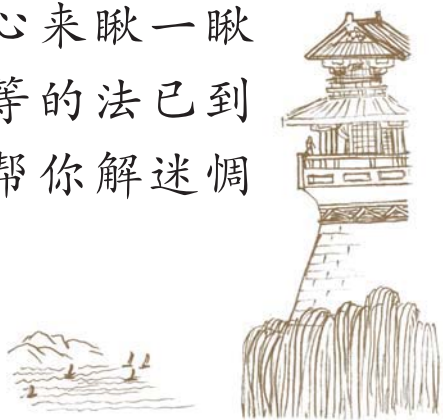 心来瞅一瞅
等的法已到
帮你解迷惘